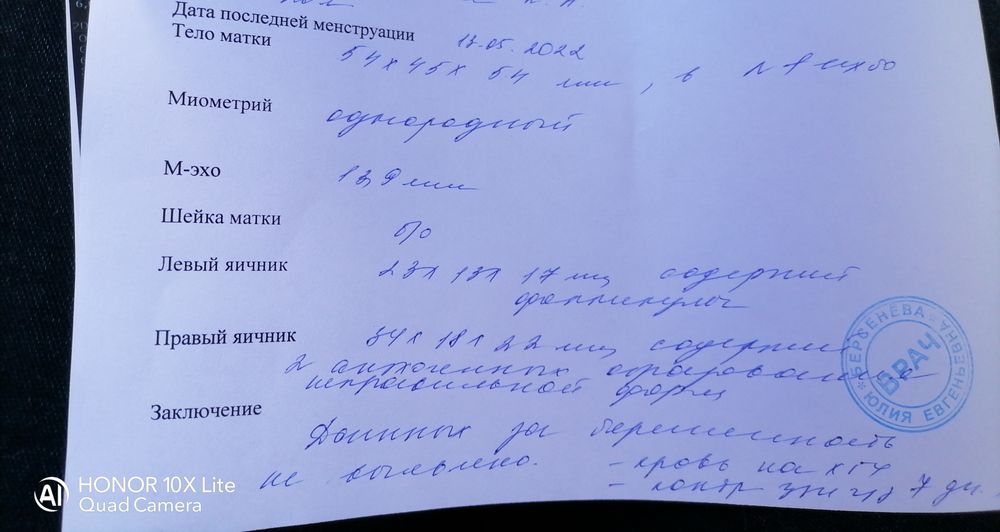 Дата последней менструации 13.05.2022
Тело матки 54 х 45 х 54 мм, в
Миометрий однородный
М-эхо 13,9 мм
Шейка матки б/о
Левый яичник 23х 13х 17 мм содержит
фолликулы
Правый яичник 34х 18х 22 мм содержит
2 анэхогенных образования
неправильной формы
Заключение
Данных за беременность
не выявлено. - кровь на ХГЧ
- контр УЗИ ч/з 7 дн.
*БЕРСЕНЕВА* ЮЛИЯ ЕВГЕНЬЕВНА
ВРАЧ
HONOR 10X Lite
Quad Camera
AI